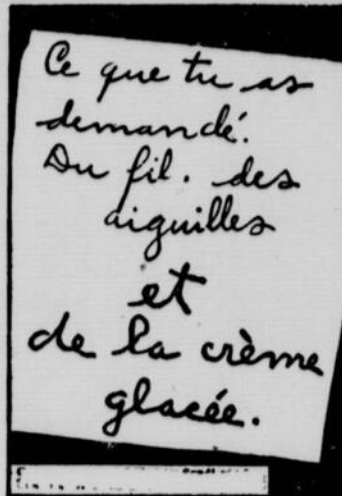 Ce que tu as
demandé.
Du fil. des
aiguilles
et
de la crème
glacée.